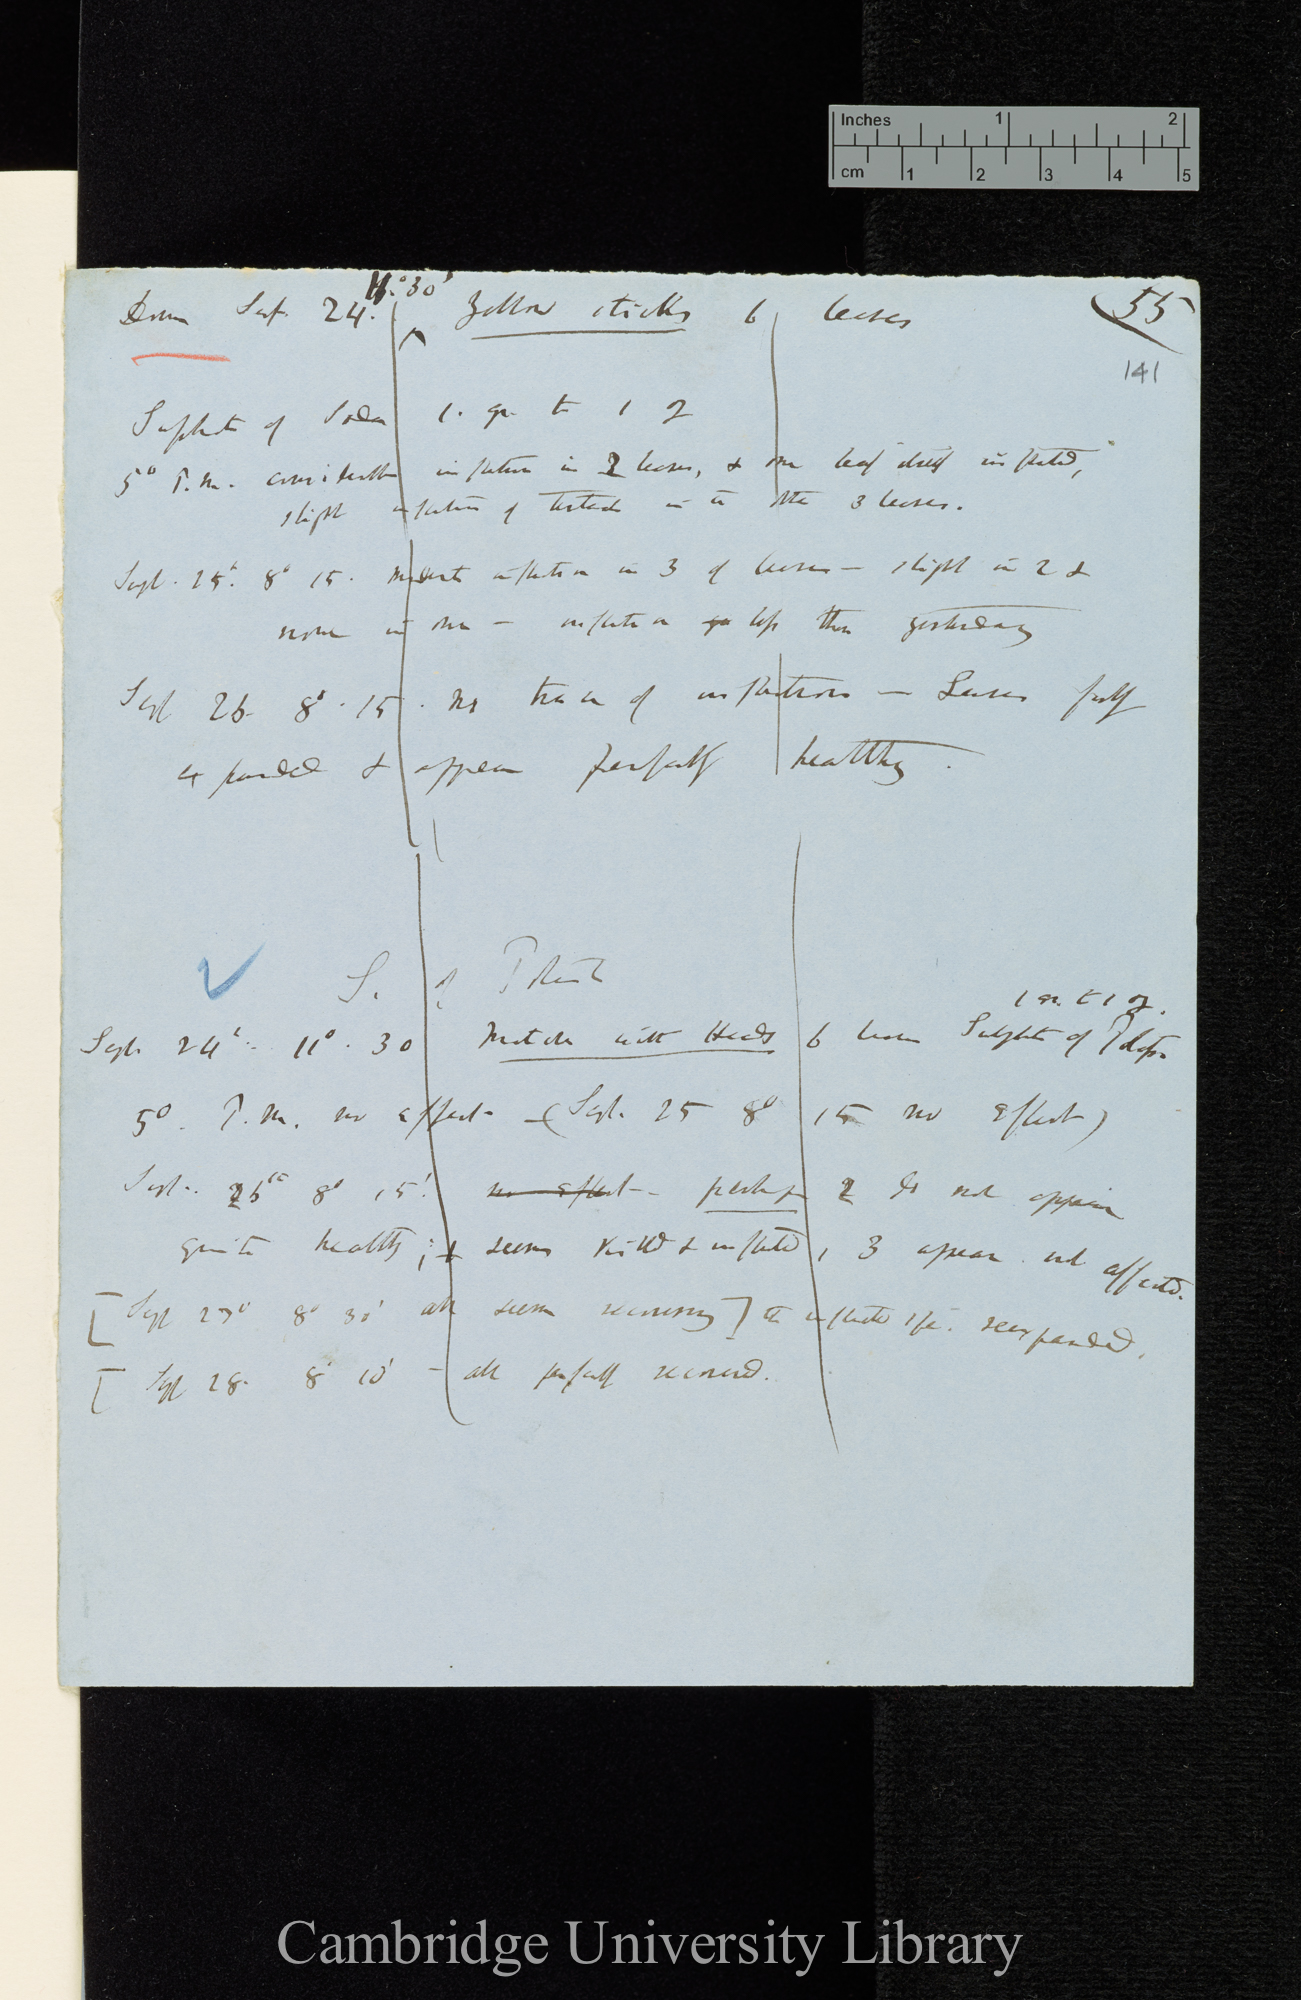 Inches 1 2
cm 1 2 3 4 5
11.° 30'
Down Sept. 24. Yellow sticks 6 leaves
55
141
Sulphate of Soda 1. gr. to 1 oz
5° P.m. considerable inflection in 2 leaves, & one leaf inflected,
slight inflection of tentacles in the 3 leaves.
Sept. 25. 8° 15. moderate inflection in 3 of leaves — slight in 2 &
none in one — inflection less than yesterday
Sept 26. 8° . 15 . no trace of inflections — Leaves fully
expanded & appear perfectly healthy.
S. of Potash
1 gr. to 1 oz.
Sept. 24 11° . 30 Matches with Heads 6 leaves Sulphate of Potash
5° . P.m. no effect — (Sept. 25 8° 15 no effect)
Sept. 26th 8° 15'. no effect — perhaps 2 do not appear
quite healthy; 1 seems killed & inflected, 3 appear not affected.
[Sept 27° 8° 30' all seem recovering] the inflected reexpanded.
[Sept 28. 8° 10' — all perfectly recovered.
Cambridge University Library